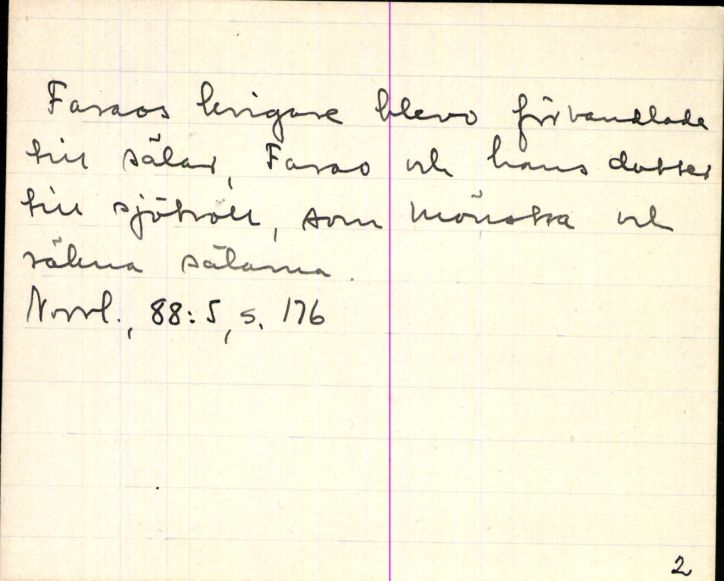 Faraos krigare blevo förvandlade
till sälar, Farao och hans dotter
till sjötroll, som mönstra och
räkna sälarna.
Norrl., 88:5, s. 176
2